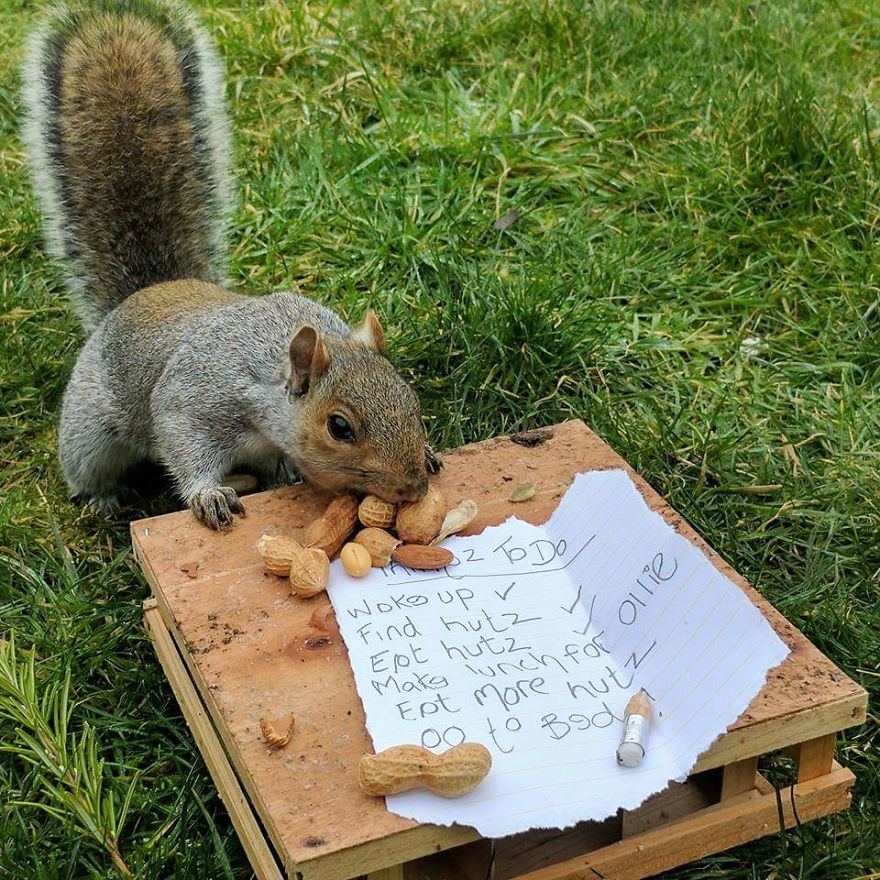 To Do
Woke up ✓
Find nutz ✓
Eat nutz ✓
Make lunch for Ollie
Eat more nutz
Go to Bed